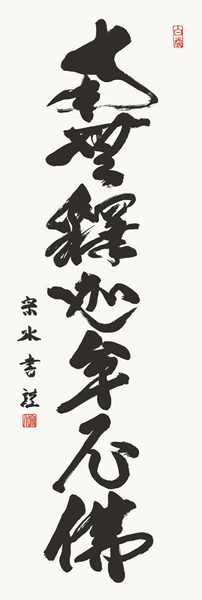 南無釋迦牟尼佛
宗水書